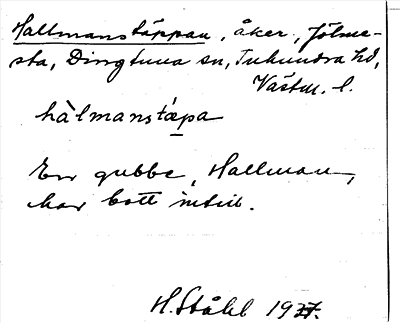 Hallmanstäppan, åker, Jölme-
sta, Dingtuna sn, Tuhundra hd,
Västm. l.
hàlmanstæ̀pa
En gubbe, Hallman,
har bott intill.
H. Ståhl 1937.